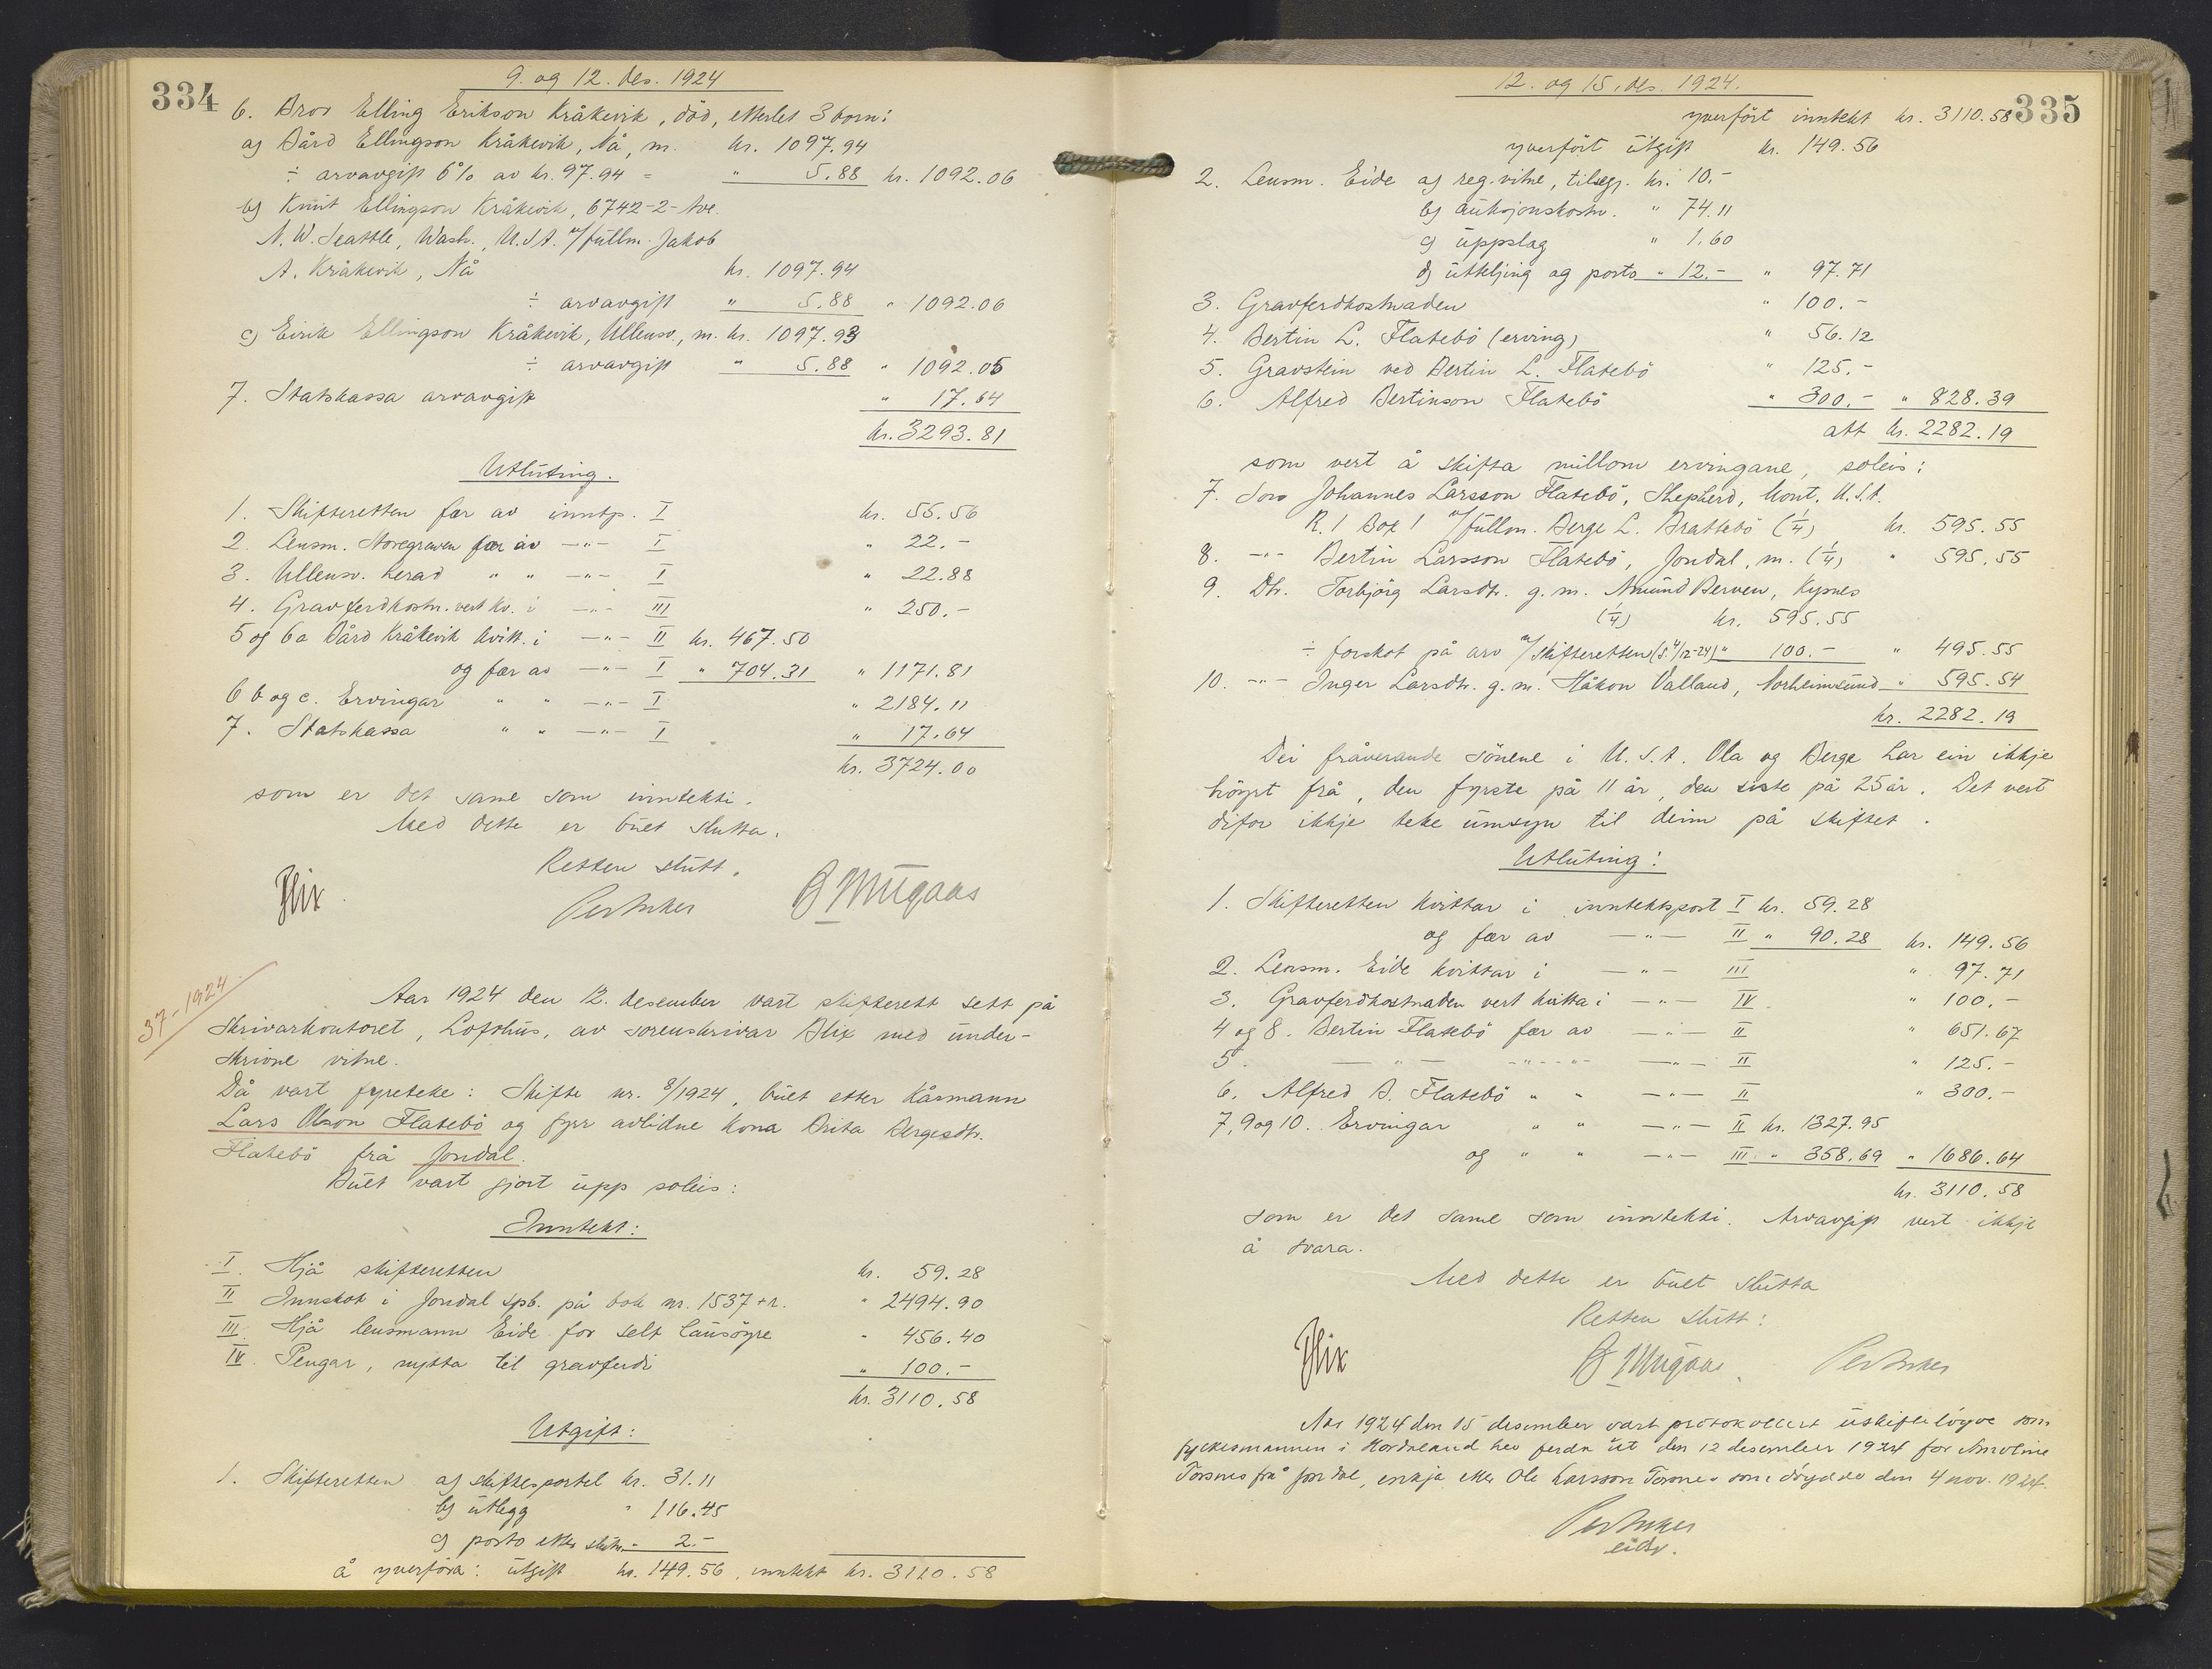 334
9. og 12. des. 1924
6. Bror Elling Erikson Kråkevik, död, etterlet 3 born:
a) Bård Ellingson Kråkevik, Nå, m. kr. 1097.94
÷ arvavgift 6% av kr. 97.94 = " 5.88 kr. 1092.06
b) Knut Ellingson Kråkevik, 6742-2-Ave.
N.W. Seattle, Wash., U.S.A. v/fullm. Jakob
A. Kråkevik, Nå kr. 1097.94
÷ arvavgift " 5.88 " 1092.06
c) Eirik Ellingson Kråkevik, Ullensv., m. kr. 1097.93
÷ arvavgift " 5.88 " 1092.05
7. Statskassa arvavgift " 17.64
kr. 3293.81
Utluting.
1. Skifteretten fær av inntp. I kr. 55.56
2. Lensm. Storegraven fær av —"— I " 22.-
3. Ullensv. herad " " —"— I " 22.88
4. Gravferdkostn. vert kv. i —"— III " 250.-
5 og 6a Bård Kråkevik kvitt. i —"— II kr. 467.50
og fær av —"— I " 704.31 " 1171.81
6 b og c. Ervingar " " —"— I " 2184.11
7. Statskassa " " —"— I " 17.64
kr. 3724.00
som er det same som inntekti.
Med dette er buet slutta.
Retten slutt.
Blix Per Anker B Mugaas
37-1924
Aar 1924 den 12. desember vart skifterett sett på
skrivarkontoret, Lofthus, av sorenskrivar Blix med under-
skrivne vitne.
Då vart fyreteke: Skifte nr. 8/1924, buet etter kårmann
Lars Olson Flatebö og fyrr avlidne kona Brita Bergesdtr.
Flatebö frå Jondal.
Buet vart gjort upp soleis:
Inntekt:
I. Hjå skifteretten kr. 59.28
II Innskot i Jondal spb. på bok nr. 1537 + r. " 2494.90
III. Hjå lensmann Eide for selt lausöyre " 456.40
IV. Pengar, nytta til gravferdi " 100.-
kr. 3110.58
Utgift:
1. Skifteretten a) skiftesportel kr. 31.11
b) utlegg " 116.45
c) porto etter slutn. " 2.-
å yverföra: utgift kr. 149.56, inntekt kr. 3110.58
335
12. og 15. des. 1924.
yverfört inntekt kr. 3110.58
yverfört utgift kr. 149.56
2. Lensm. Eide a) reg. vitne, tilsegj. kr. 10.-
b) auksjonskostn. " 74.11
c) uppslag " 1.60
d) utteljing og porto " 12.- " 97.71
3. Gravferdkostnaden " 100.-
4. Bertin L. Flatebö (erving) " 56.12
5. Gravstein ved Bertin L. Flatebö " 125.-
6. Alfred Bertinson Flatebö " 300.- " 828.39
att kr. 2282.19
som vert å skifta millom ervingane, soleis:
7. Son Johannes Larsson Flatebö, Shepherd, Mont. U.S.A.
R. 1 Box 1 v/fullm. Berge L. Brattebö (1/4) kr. 595.55
8. —"— Bertin Larsson Flatebö, Jondal, m. (1/4) " 595.55
9. Dtr. Torbjörg Larsdtr. g. m. Amund Berven, Kysnes
(1/4) kr. 595.55
÷ forskot på arv v/skifteretten (s. 4/12-24) " 100.- " 495.55
10. —"— Inger Larsdtr. g. m. Håkon Valland, Norheimsund " 595.54
kr. 2282.19
Dei fråverande sönene i U.S.A. Ola og Berge har ein ikkje
höyrt frå, den fyrste på 11 år, den siste på 25 år. Det vert
difor ikkje teke umsyn til deim på skiftet.
Utluting:
1. Skifteretten kvittar i inntektspost I kr. 59.28
og fær av —"— II " 90.28 kr. 149.56
2. Lensm. Eide kvittar i —"— III " 97.71
3. Gravferdkostnaden vert kvitta i —"— IV " 100.-
4 og 8. Bertin Flatebö fær av —"— II " 651.67
5. —"— —"— —"— II " 125.-
6. Alfred B. Flatebö " " —"— II " 300.-
7, 9 og 10. Ervingar " " —"— II kr. 1327.95
og " " —"— III " 358.69 " 1686.64
kr. 3110.58
som er det same som inntekti. Arvavgift vert ikkje
å svara.
Med dette er buet slutta
Retten slutt:
Blix B Mugaas Per Anker
Aar 1924 den 15 desember vart protokollert uskiftelöyve som
fylkesmannen i Hordaland hev ferda ut den 12 desember 1924 for Amoline
Torsnes frå Jondal, enkja etter Ole Larsson Torsnes som döydde den 4 nov. 1924.
Per Anker
eidsv.